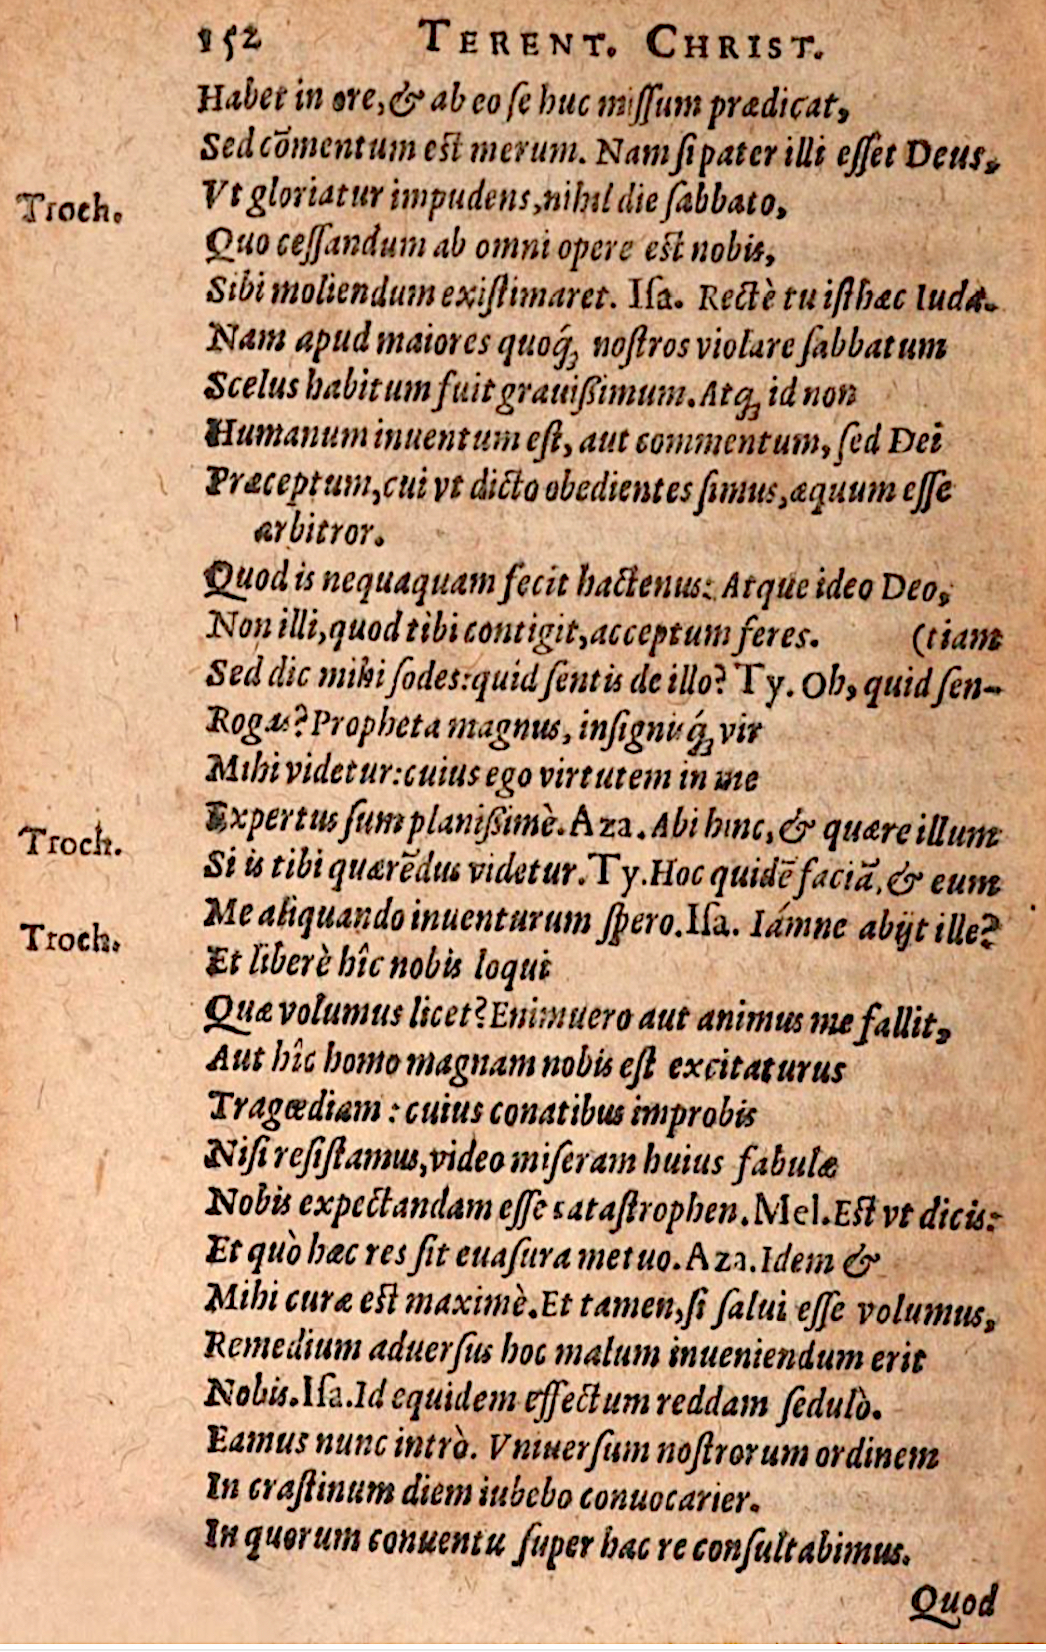 152 TERENT. CHRIST.
Habet in ore, & ab eo ſe huc miſſum prædicat,
Sed cōmentum eſt merum. Nam ſi pater illi eſſet Deus,
Troch. Vt gloriatur impudens, nihil die ſabbato,
Quo ceſſandum ab omni opere eſt nobis,
Sibi moliendum exiſtimaret. Iſa. Rectè tu iſthæc Iuda.
Nam apud maiores quoq́; noſtros violare ſabbatum
Scelus habitum fuit grauißimum. Atq; id non
Humanum inuentum eſt, aut commentum, ſed Dei
Præceptum, cui vt dicto obedientes ſimus, æquum eſſe
arbitror.
Quod is nequaquam fecit hactenus: Atque ideo Deo,
Non illi, quod tibi contigit, acceptum feres. (tiam
Sed dic mihi ſodes: quid ſentis de illo? Ty. Oh, quid ſen-
Rogas? Propheta magnus, inſignisq́; vir
Mihi videtur: cuius ego virtutem in me
Expertus ſum planißimè. Aza. Abi hinc, & quære illum
Troch. Si is tibi quærēdus videtur. Ty. Hoc quidē faciā, & eum
Me aliquando inuenturum ſpero. Iſa. Iámne abijt ille?
Troch. Et liberè hîc nobis loqui
Quæ volumus licet? Enimuero aut animus me fallit,
Aut hîc homo magnam nobis eſt excitaturus
Tragœdiam : cuius conatibus improbis
Niſi reſiſtamus, video miſeram huius fabulæ
Nobis expectandam eſſe cataſtrophen. Mel. Eſt vt dicis:
Et quò hæc res ſit euaſura metuo. Aza. Idem &
Mihi curæ eſt maximè. Et tamen, ſi ſalui eſſe volumus,
Remedium aduerſus hoc malum inueniendum erit
Nobis. Iſa. Id equidem effectum reddam ſedulò.
Eamus nunc intrò. Vniuerſum noſtrorum ordinem
In craſtinum diem iubebo conuocarier.
In quorum conuentu ſuper hac re conſultabimus.
Quod